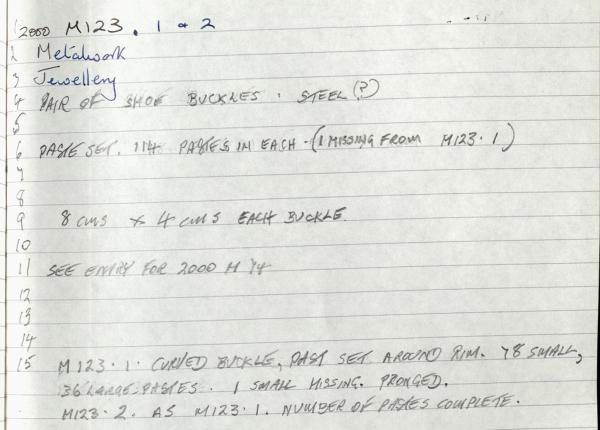 1 2000 M123. 1 & 2
2 Metalwork
3 Jewellery
4 PAIR OF SHOE BUCKLES. STEEL (?)
5
6 PASTE SET. 114 PASTES IN EACH. (1 MISSING FROM M123.1)
7
8
9 8 cms x 4 cms EACH BUCKLE
10
11 SEE ENTRY FOR 2000 M 14
12
13
14
15 M123.1. CURVED BUCKLE, PAST SET AROUND RIM. 78 SMALL,
36 LARGE PASTES. 1 SMALL MISSING. PRONGED.
M123.2. AS M123.1. NUMBER OF PASTES COMPLETE.